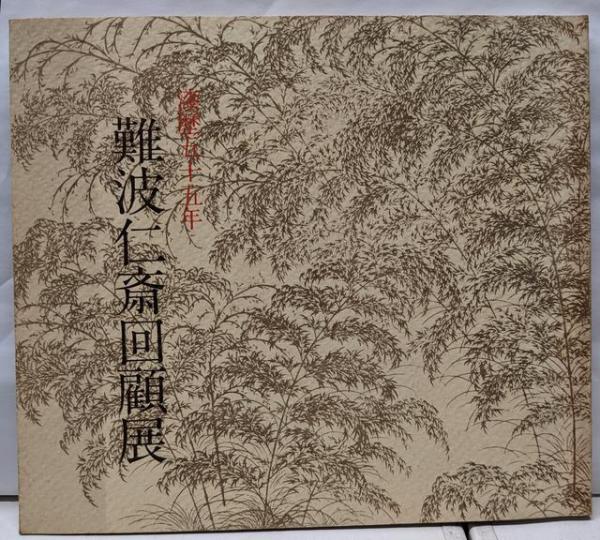 漆歴五十五年
難波仁斎回顧展